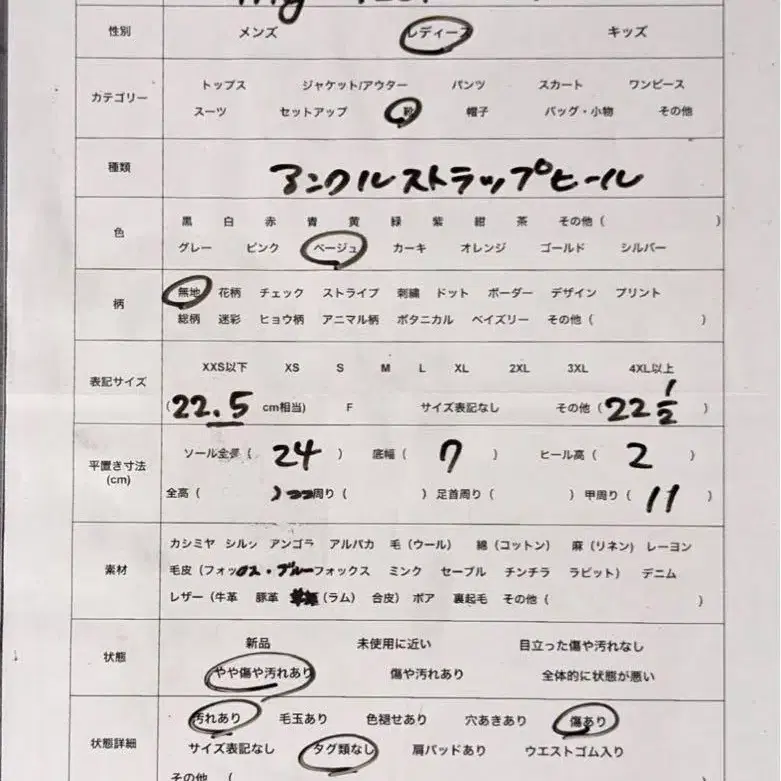 性別 メンズ レディース キッズ
カテゴリー
トップス ジャケット/アウター パンツ スカート ワンピース
スーツ セットアップ 靴 帽子 バッグ・小物 その他
種類 アンクルストラップヒール
色
黒 白 赤 青 黄 緑 紫 紺 茶 その他 ( )
グレー ピンク ベージュ カーキ オレンジ ゴールド シルバー
柄
無地 花柄 チェック ストライプ 刺繍 ドット ボーダー デザイン プリント
総柄 迷彩 ヒョウ柄 アニマル柄 ボタニカル ペイズリー その他 ( )
表記サイズ
XXS以下 XS S M L XL 2XL 3XL 4XL以上
(22.5 cm相当) F サイズ表記なし その他 (22 1/2)
平置き寸法
(cm)
ソール全長 ( 24 ) 底幅 ( 7 ) ヒール高 ( 2 )
全高 ( ) 周り ( ) 足首周り ( ) 甲周り ( 11 )
素材
カシミヤ シルク アンゴラ アルパカ 毛 (ウール) 綿 (コットン) 麻 (リネン) レーヨン
毛皮 (フォックス・ブルーフォックス ミンク セーブル チンチラ ラビット) デニム
レザー (牛革 豚革 (ラム) 合皮) ボア 裏起毛 その他 ( )
状態
新品 未使用に近い 目立った傷や汚れなし
やや傷や汚れあり 傷や汚れあり 全体的に状態が悪い
状態詳細
汚れあり 毛玉あり 色褪せあり 穴あきあり 傷あり
サイズ表記なし タグ類なし 肩パッドあり ウエストゴム入り
その他 (